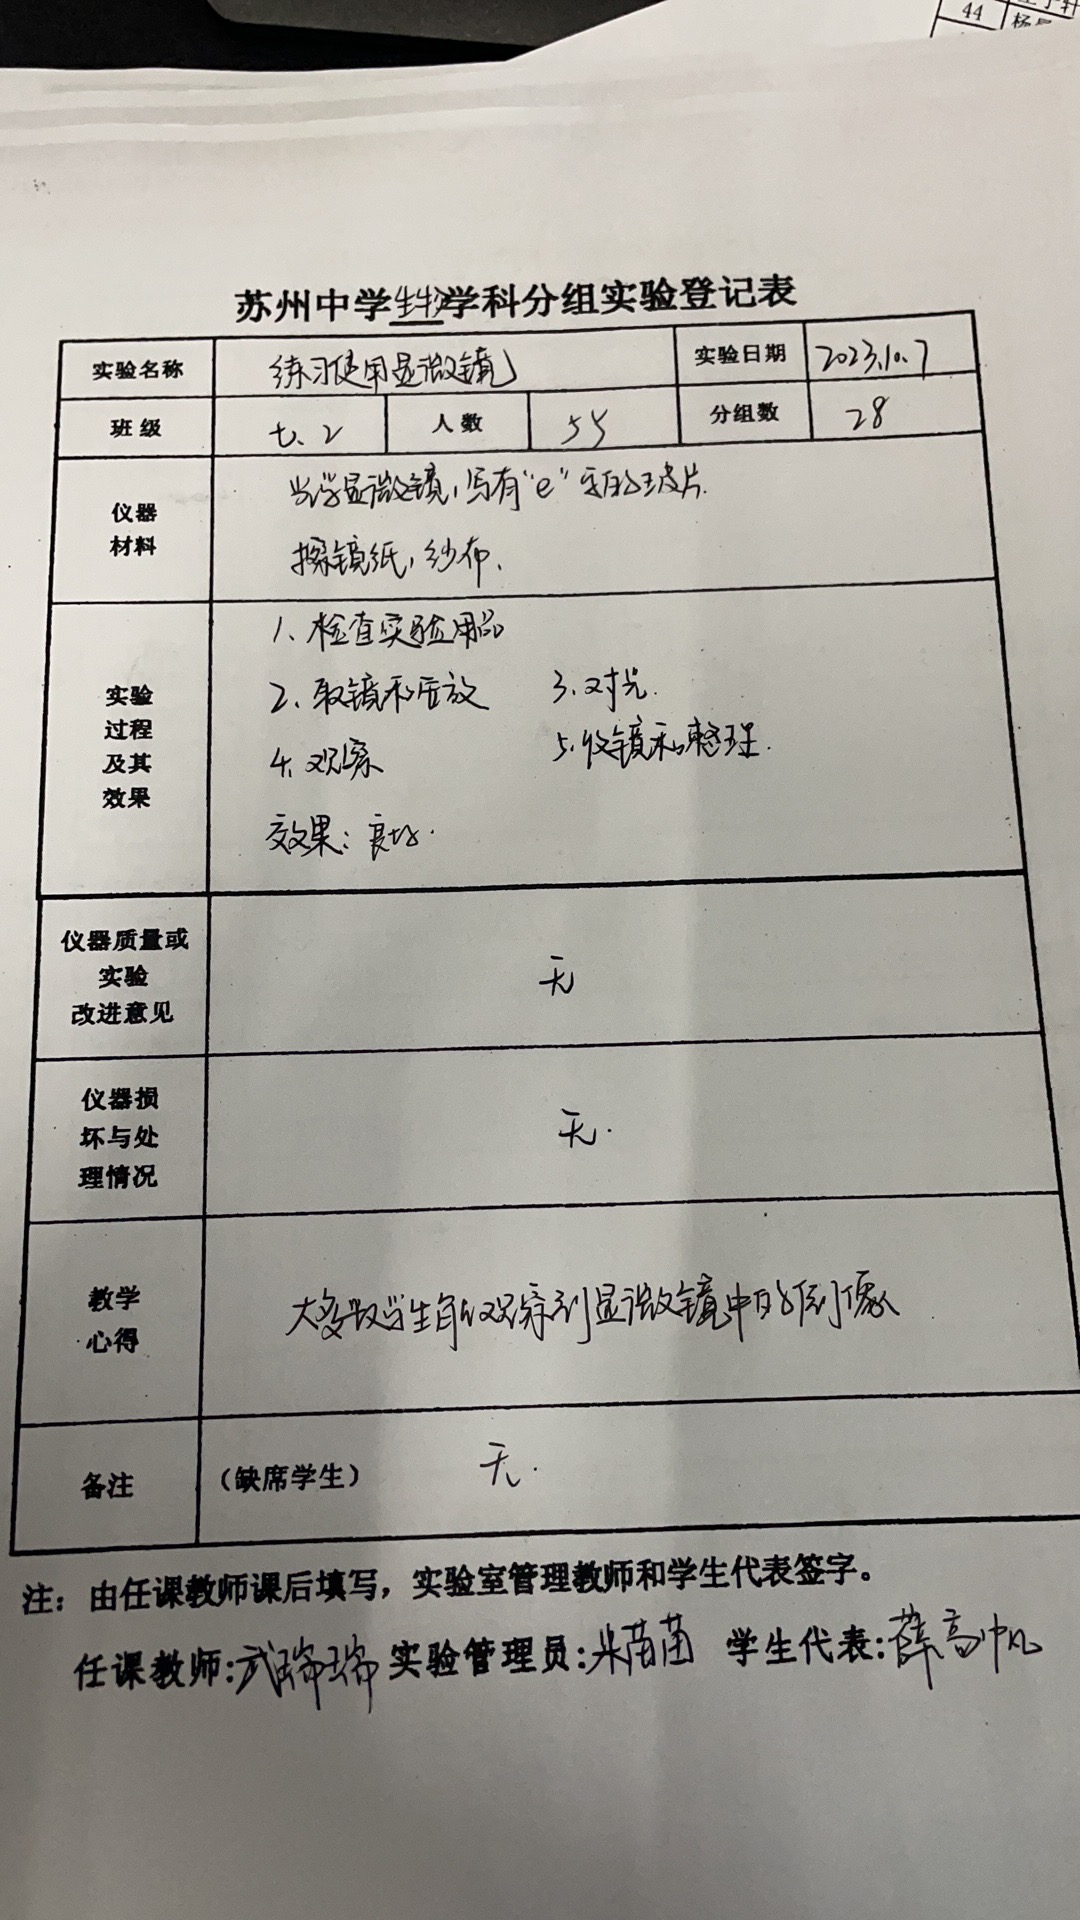 44
苏州中学生物学科分组实验登记表
实验名称 练习使用显微镜 实验日期 2023.10.7
班级 七.2 人数 55 分组数 28
仪器材料
光学显微镜,写有"e"字的玻片.
擦镜纸,纱布、
实验过程及其效果
1、检查实验用品
2、取镜和安放 3.对光.
4.观察 5.收镜和整理.
效果:良好.
仪器质量或实验改进意见 无
仪器损坏与处理情况 无.
教学心得 大多数学生能观察到显微镜中的倒像
备注 (缺席学生) 无.
注:由任课教师课后填写,实验室管理教师和学生代表签字。
任课教师:武瑞瑞 实验管理员:苗苗 学生代表:薛高